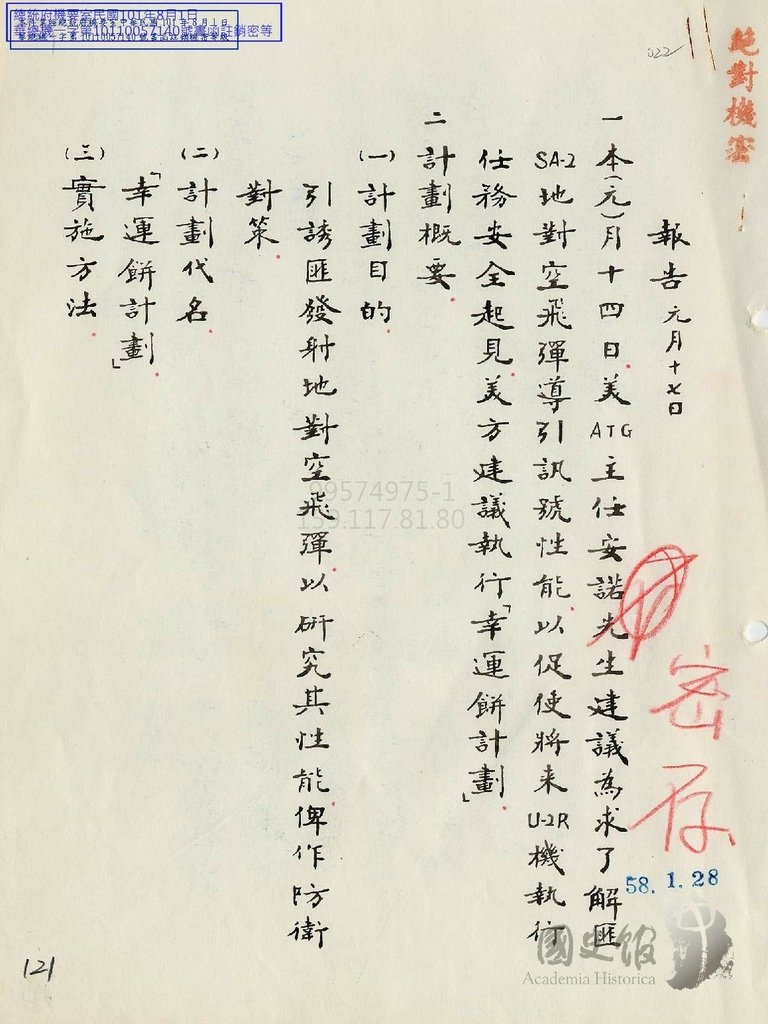 總統府機要室民國101年8月1日
華總機一字第10110057140號書函註銷密等
022
絕對機密
報告 元月十七日
一 本(元)月十四日美ATG主任安諾先生建議為求了解匪
SA-2地對空飛彈導引訊號性能以促使將來U-2R機執行
任務安全起見美方建議執行「幸運餅計劃」
二 計劃概要
(一)計劃目的
引誘匪發射地對空飛彈以研究其性能俾作防衛
對策
(二)計劃代名
「幸運餅計劃」
(三)實施方法
密存
58.1.28
99574975-1
159.117.81.80
國史館
Academia Historica
121